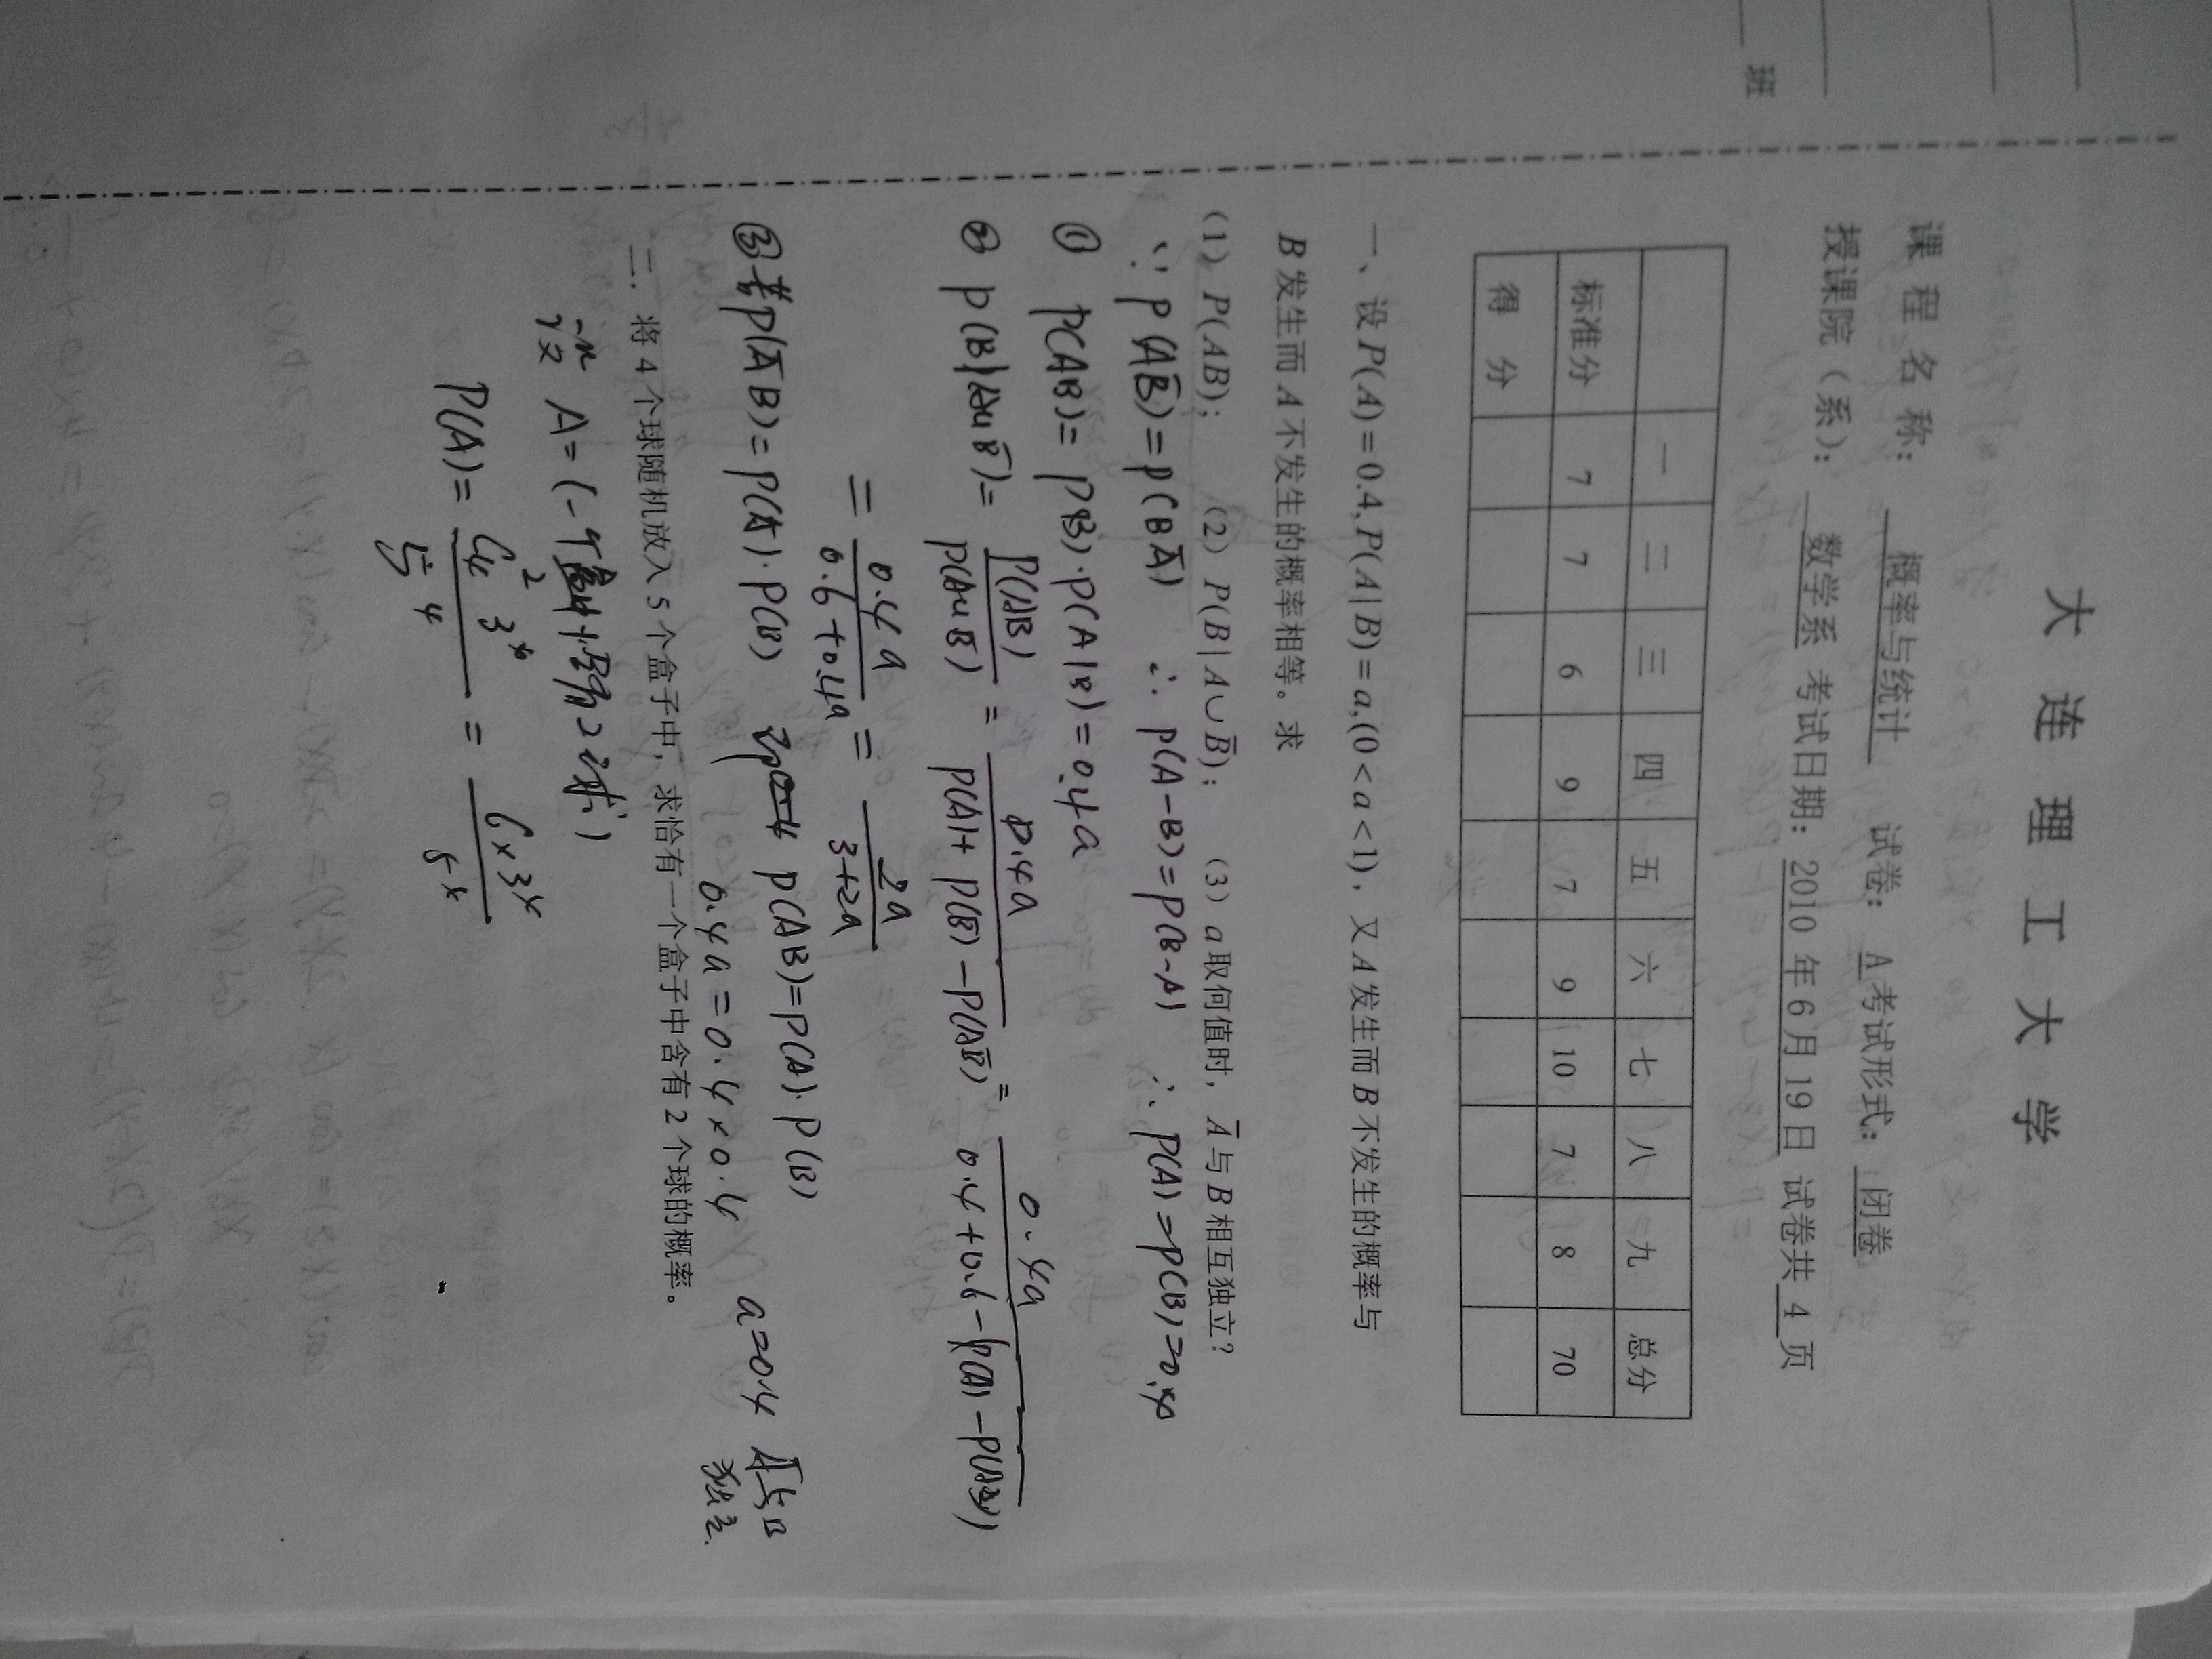 班
大 连 理 工 大 学
课 程 名 称： 概率与统计 试卷： A 考试形式： 闭卷
授课院（系）： 数学系 考试日期：2010 年 6 月 19 日 试卷共 4 页
一 二 三 四 五 六 七 八 九 总分
标准分 7 7 6 9 7 9 10 7 8 70
得 分
一、设 P(A)=0.4, P(A|B)=a,(0<a<1)，又 A 发生而 B 不发生的概率与
B 发生而 A 不发生的概率相等。求
(1) P(AB)； (2) P(B|A∪B̄)； (3) a 取何值时， Ā 与 B 相互独立？
∵ P(AB̄)=P(BĀ) ∴ P(A-B)=P(B-A) ∴ P(A)=P(B)=0.4
① P(AB)= P(B)·P(A|B)=0.4a
② P(B|A∪B̄)= P(AB)/P(A∪B̄) = 0.4a/P(A)+P(B̄)-P(AB̄) = 0.4a/0.4+0.6-(P(A)-P(AB))
= 0.4a/0.6+0.4a = 2a/3+2a
③ 若P(ĀB)=P(Ā)·P(B) P(AB)=P(A)·P(B) a=0.4 Ā与B
0.4a=0.4×0.4 独立.
二. 将 4 个球随机放入 5 个盒子中，求恰有一个盒子中含有 2 个球的概率。
A=(一个盒中恰有2球)
P(A)= C₄² 3⁴/5⁴ = 6×3⁴/5⁴